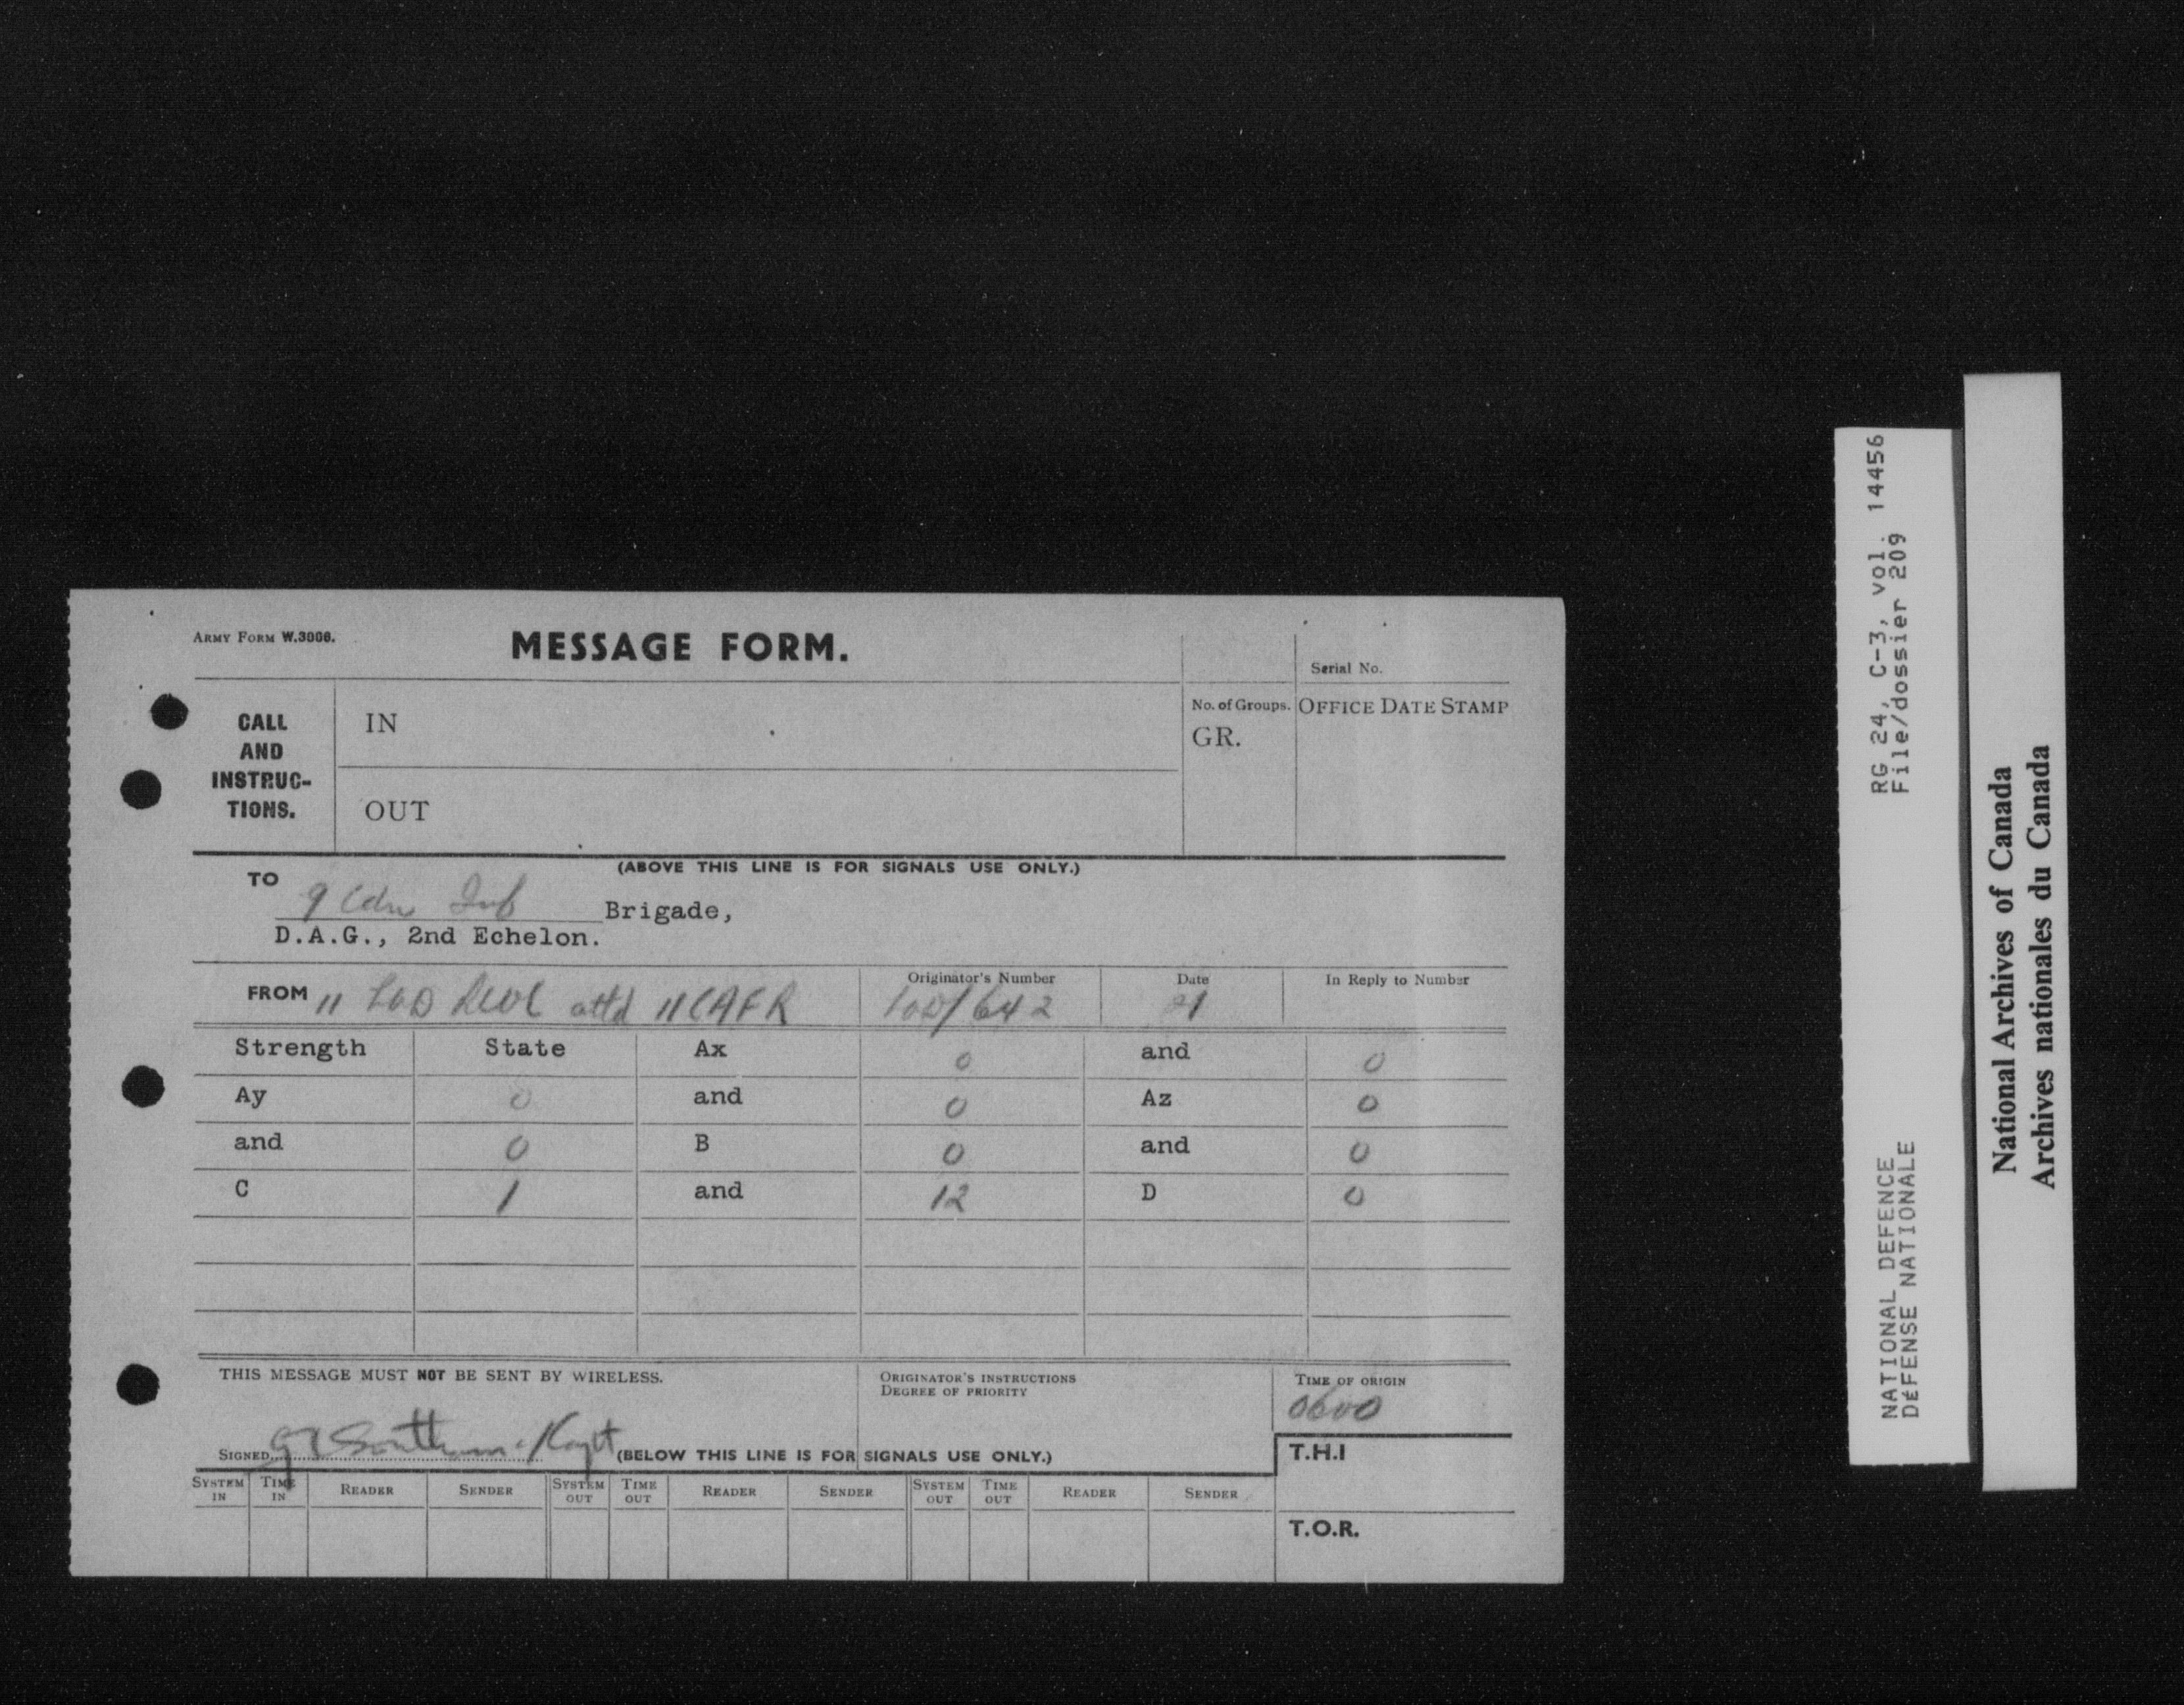 ARMY FORM W.3006.
MESSAGE FORM.
Serial No.
CALL AND INSTRUC- TIONS.
IN
No. of Groups.
GR.
OFFICE DATE STAMP
OUT
(ABOVE THIS LINE IS FOR SIGNALS USE ONLY.)
TO
9 Cdn Inf Brigade,
D.A.G., 2nd Echelon.
FROM 11 LAD attd 11 CAFR
Originator's Number
LAD/642
Date
21
In Reply to Number
Strength State Ax 0 and 0
Ay 0 and 0 Az 0
and 0 B 0 and 0
C 1 and 12 D 0
THIS MESSAGE MUST NOT BE SENT BY WIRELESS.
ORIGINATOR'S INSTRUCTIONS
DEGREE OF PRIORITY
TIME OF ORIGIN
0600
SIGNED
(BELOW THIS LINE IS FOR SIGNALS USE ONLY.)
T.H.I
SYSTEM IN TIME IN READER SENDER SYSTEM OUT TIME OUT READER SENDER SYSTEM OUT TIME OUT READER SENDER
T.O.R.
RG 24, C-3, vol. 14456
File/dossier 209
NATIONAL DEFENCE
DÉFENSE NATIONALE
National Archives of Canada
Archives nationales du Canada